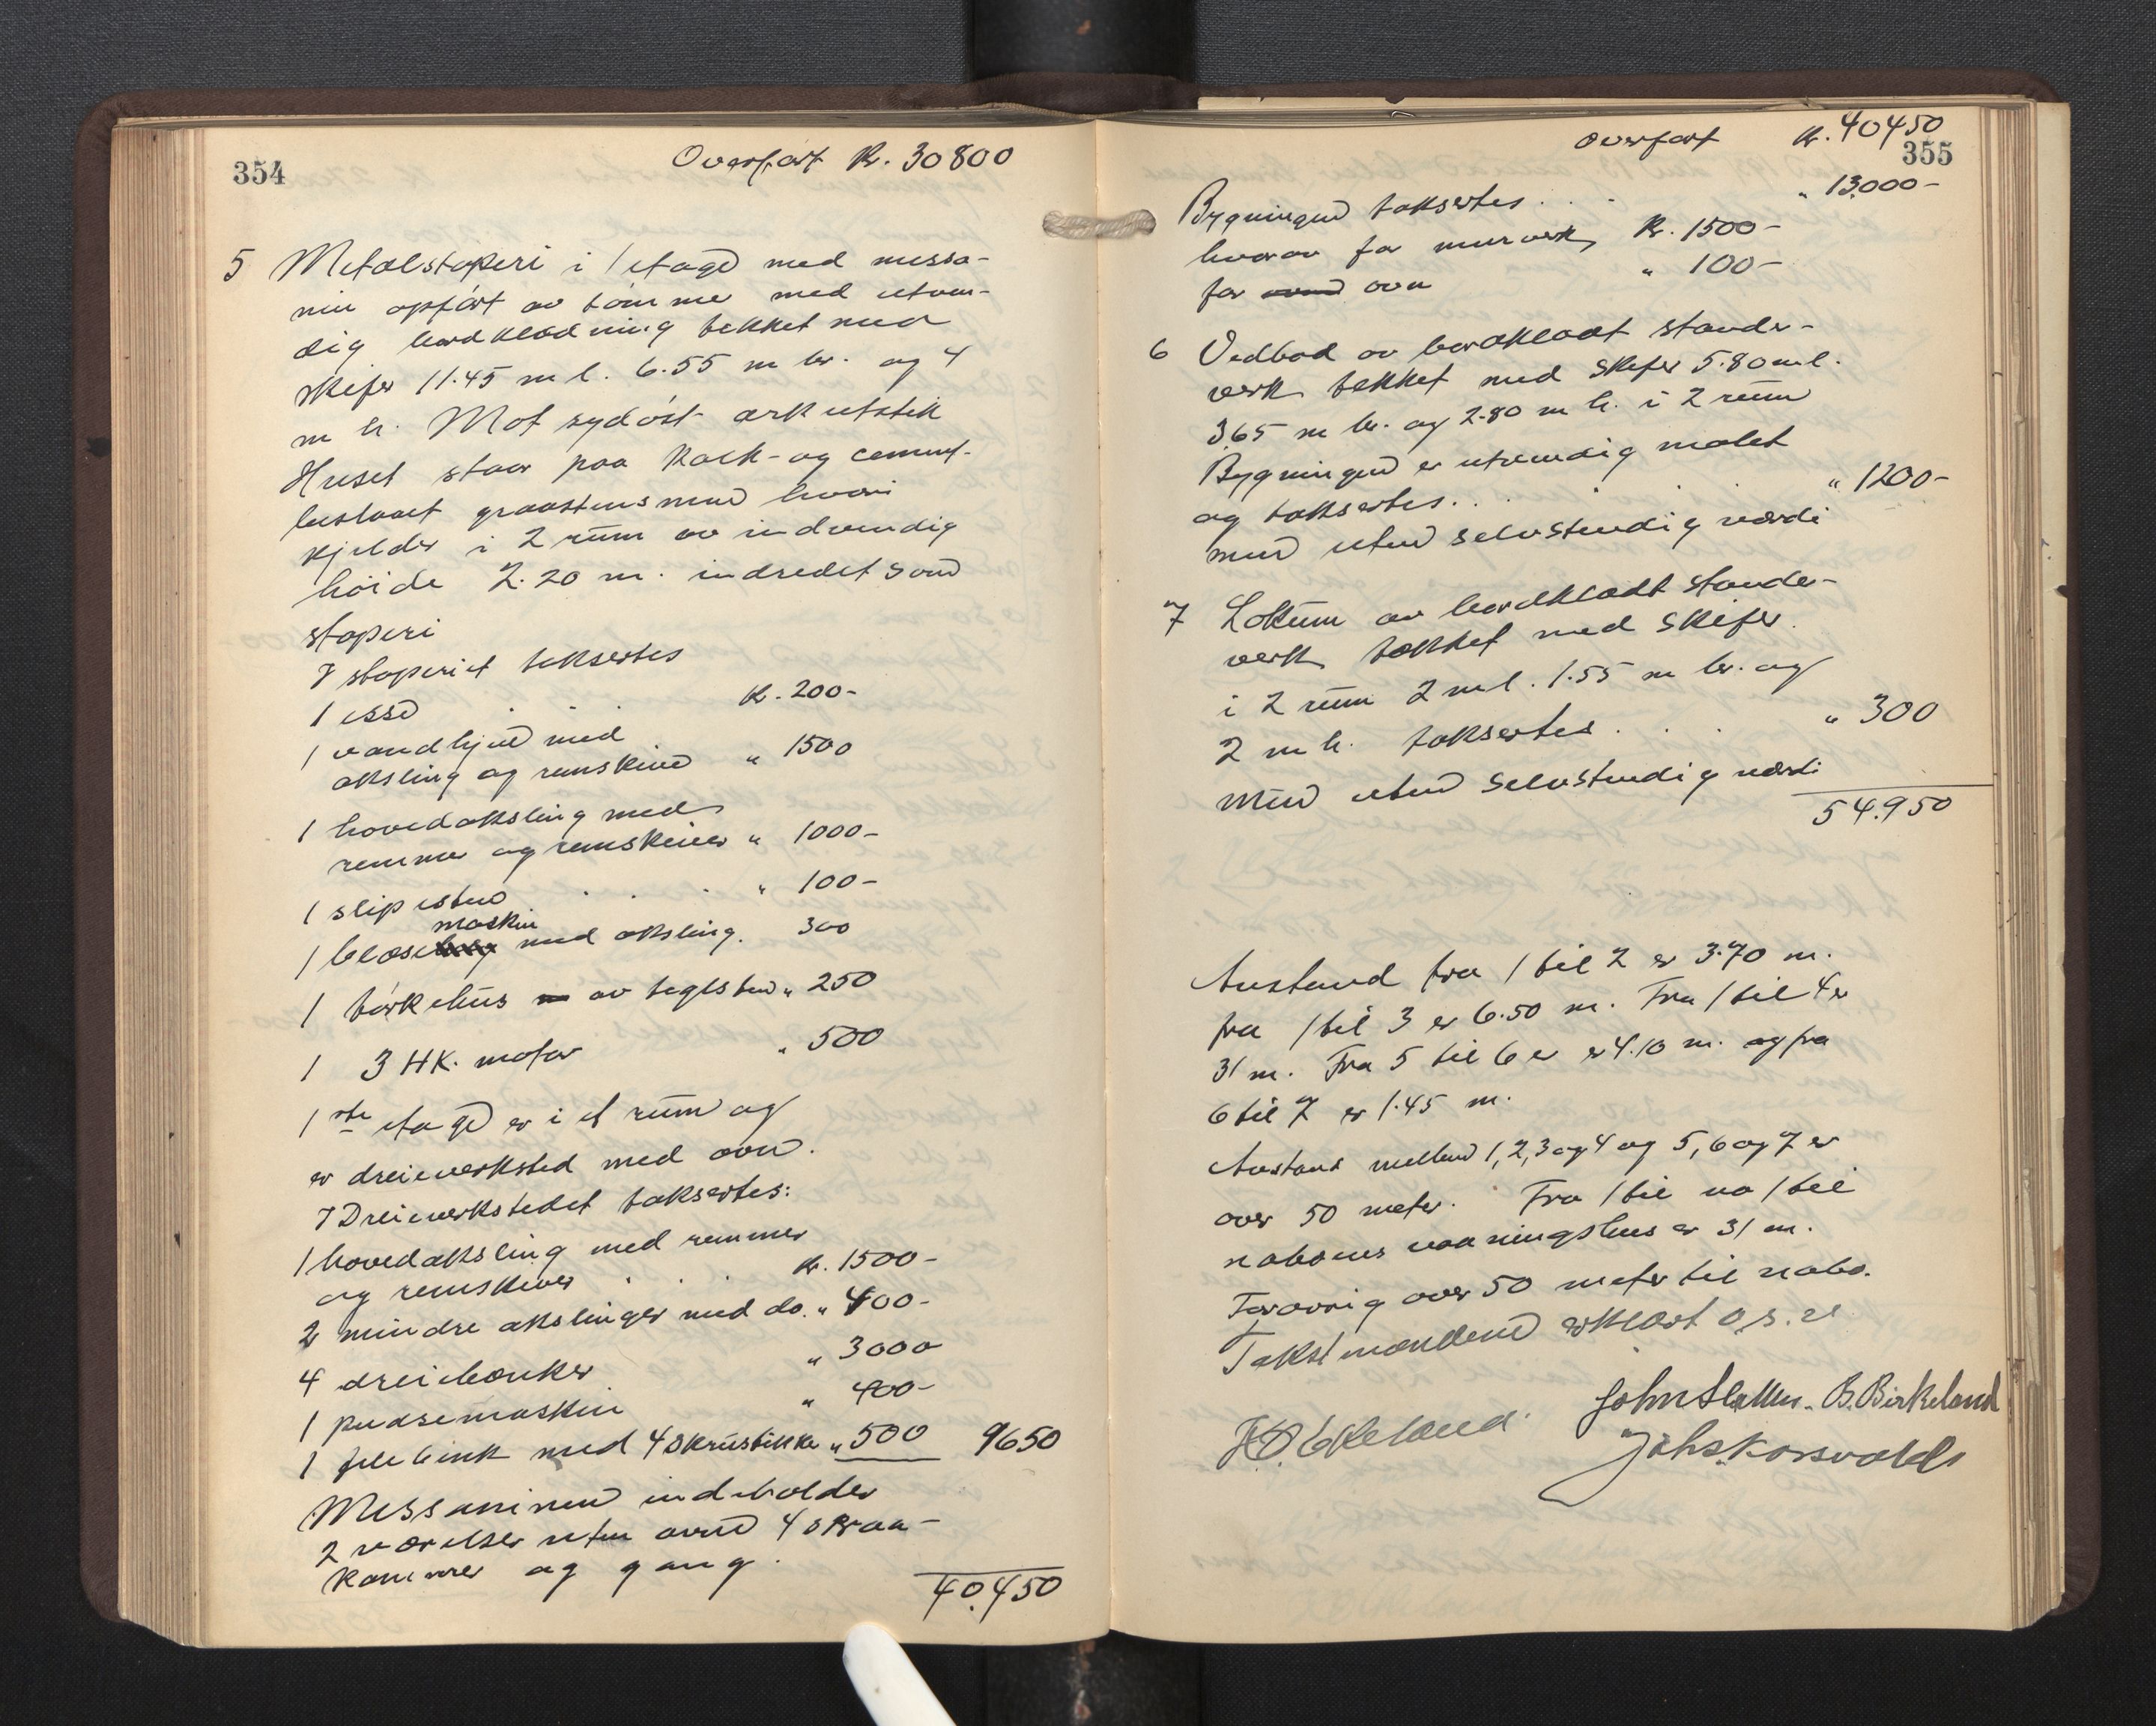 354
Overført Kr. 30800
5 Metalstøperi i 1 etage med messa-
nin opført av tømmer med utven-
dig bordklædning tekket med
skifer 11.45 m l. 6.55 m br. og 4
m h. Mot sydøst arkutstik
Huset staar paa kalk- og cement-
beslaaet graastensmur hvori
kjelder i 2 rum av indvendig
høide 2.20 m. indredet som
støperi
I støperiet taksertes
1 esse . . . Kr. 200-
1 vandhjul med
aksling og remskive " 1500
1 hovedaksling med
remmer og remskiver " 1000-
1 slipesten . . " 100-
maskin
1 blæsebelg med aksling. 300
1 tørkehus av teglsten " 250
1 3 HK. motor " 500
1ste etage er i et rum og
er dreieverksted med ovn.
I Dreieverkstedet taksertes:
1 hovedaksling med remmer
og remskiver . . . Kr. 1500-
2 mindre akslinger med do. " 400-
4 dreibænker " 3000
1 pudsemaskin " 400-
1 filebænk med 4 skrustikker " 500 9650
Messaninen indeholder
2 værelser uten ovne 4 skraa-
kammer og gang.
40.450
Overført Kr. 40450
355
Bygningen taksertes . . " 13.000-
hvorav for murverk Kr. 1500-
for ovn " 100-
6 Vedbod av bordklædt stender-
verk tækket med skifer 5.80 m l.
3.65 m br. og 2.80 m h. i 2 rum
Bygningen er utvendig malet
og taksertes . . . " 1200-
mur uten selvstendig værdi
7 Lokum av bordklædt stender-
verk tækket med skifer.
i 2 rum 2 m l. 1.55 m br. og
2 m h. taksertes . . . " 300
mur uten selvstendig værdi
54.950
Avstand fra 1 til 2 er 3.70 m.
fra 1 til 3 er 6.50 m. Fra 1 til 4 er
31 m. Fra 5 til 6 er er 4.10 m. og fra
6 til 7 er 1.45 m.
Avstand mellem 1, 2, 3 og 4 og 5, 6 og 7 er
over 50 meter. Fra 1 til no 1 til
naboens vaaningshus er 31 m.
Forøvrig over 50 meter til nabo.
Takstmændene erklært o. s. v.
John Slatten. B. Birkeland
Johs. Korsvold